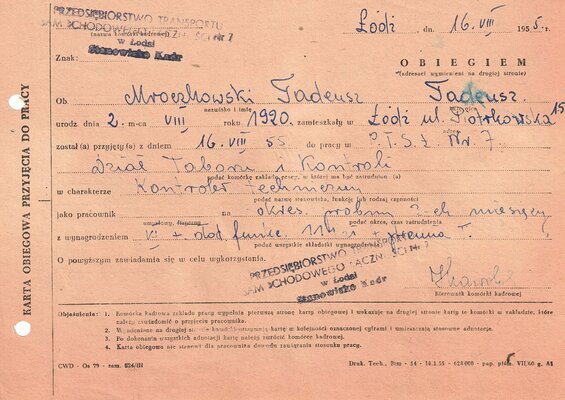 PRZEDSIĘBIORSTWO TRANSPORTU
SAMOCHODOWEGO ŁĄCZNOŚCI Nr 7
w Łodzi
Stanowisko Kadr
(nazwa komórki kadrowej)
Łódź, dn. 16. VIII 1955. r.
Znak:
OBIEGIEM
(adresaci wymienieni na drugiej stronie)
Ob. Mroczkowski Tadeusz Tadeusz.
nazwisko i imię
urodz dnia 2. m-ca VIII roku 1920. zamieszkały w Łódź ul. Piotrkowska 15
adres
został(a) przyjęty(a) z dniem 16. VIII 55 do pracy w P.T.S.Ł. Nr. 7.
Dział Taboru i Kontroli
podać komórkę zakładu pracy, w której ma być zatrudniony (a)
w charakterze Kontroler techniczny
podać nazwę stanowiska, funkcję lub rodzaj czynności
jako pracownik na okres próbny 2-ch miesięcy
umysłowy, fizyczny podać okres, czas zatrudnienia
z wynagrodzeniem + dod. funkc. + premia T.
podać wszystkie składniki wynagrodzenia
PRZEDSIĘBIORSTWO TRANSPORTU
SAMOCHODOWEGO ŁĄCZNOŚCI Nr 7
w Łodzi
Stanowisko Kadr
O powyższym zawiadamia się w celu wykorzystania.
Kierownik komórki kadrowej
Objaśnienie: 1. Komórka kadrowa zakładu pracy wypełnia pierwszą stronę karty obiegowej i wskazuje na drugiej stronie karty te komórki w zakładzie, które
należy zawiadomić o przyjęciu pracownika.
2. Wymienione na drugiej stronie komórki kartę w kolejności oznaczonej cyframi i umieszczają stosowne adnotacje.
3. Po dokonaniu wszystkich adnotacji kartę należy zwrócić komórce kadrowej.
4. Karta obiegowa nie stanowi dla pracownika dowodu zawiązania stosunku pracy.
CWD - Os 79 - zam. Druk. Tech., Bzm - 54 - 18.1.55 - 628000 - pap. VII/60 g. A5
KARTA OBIEGOWA PRZYJĘCIA DO PRACY